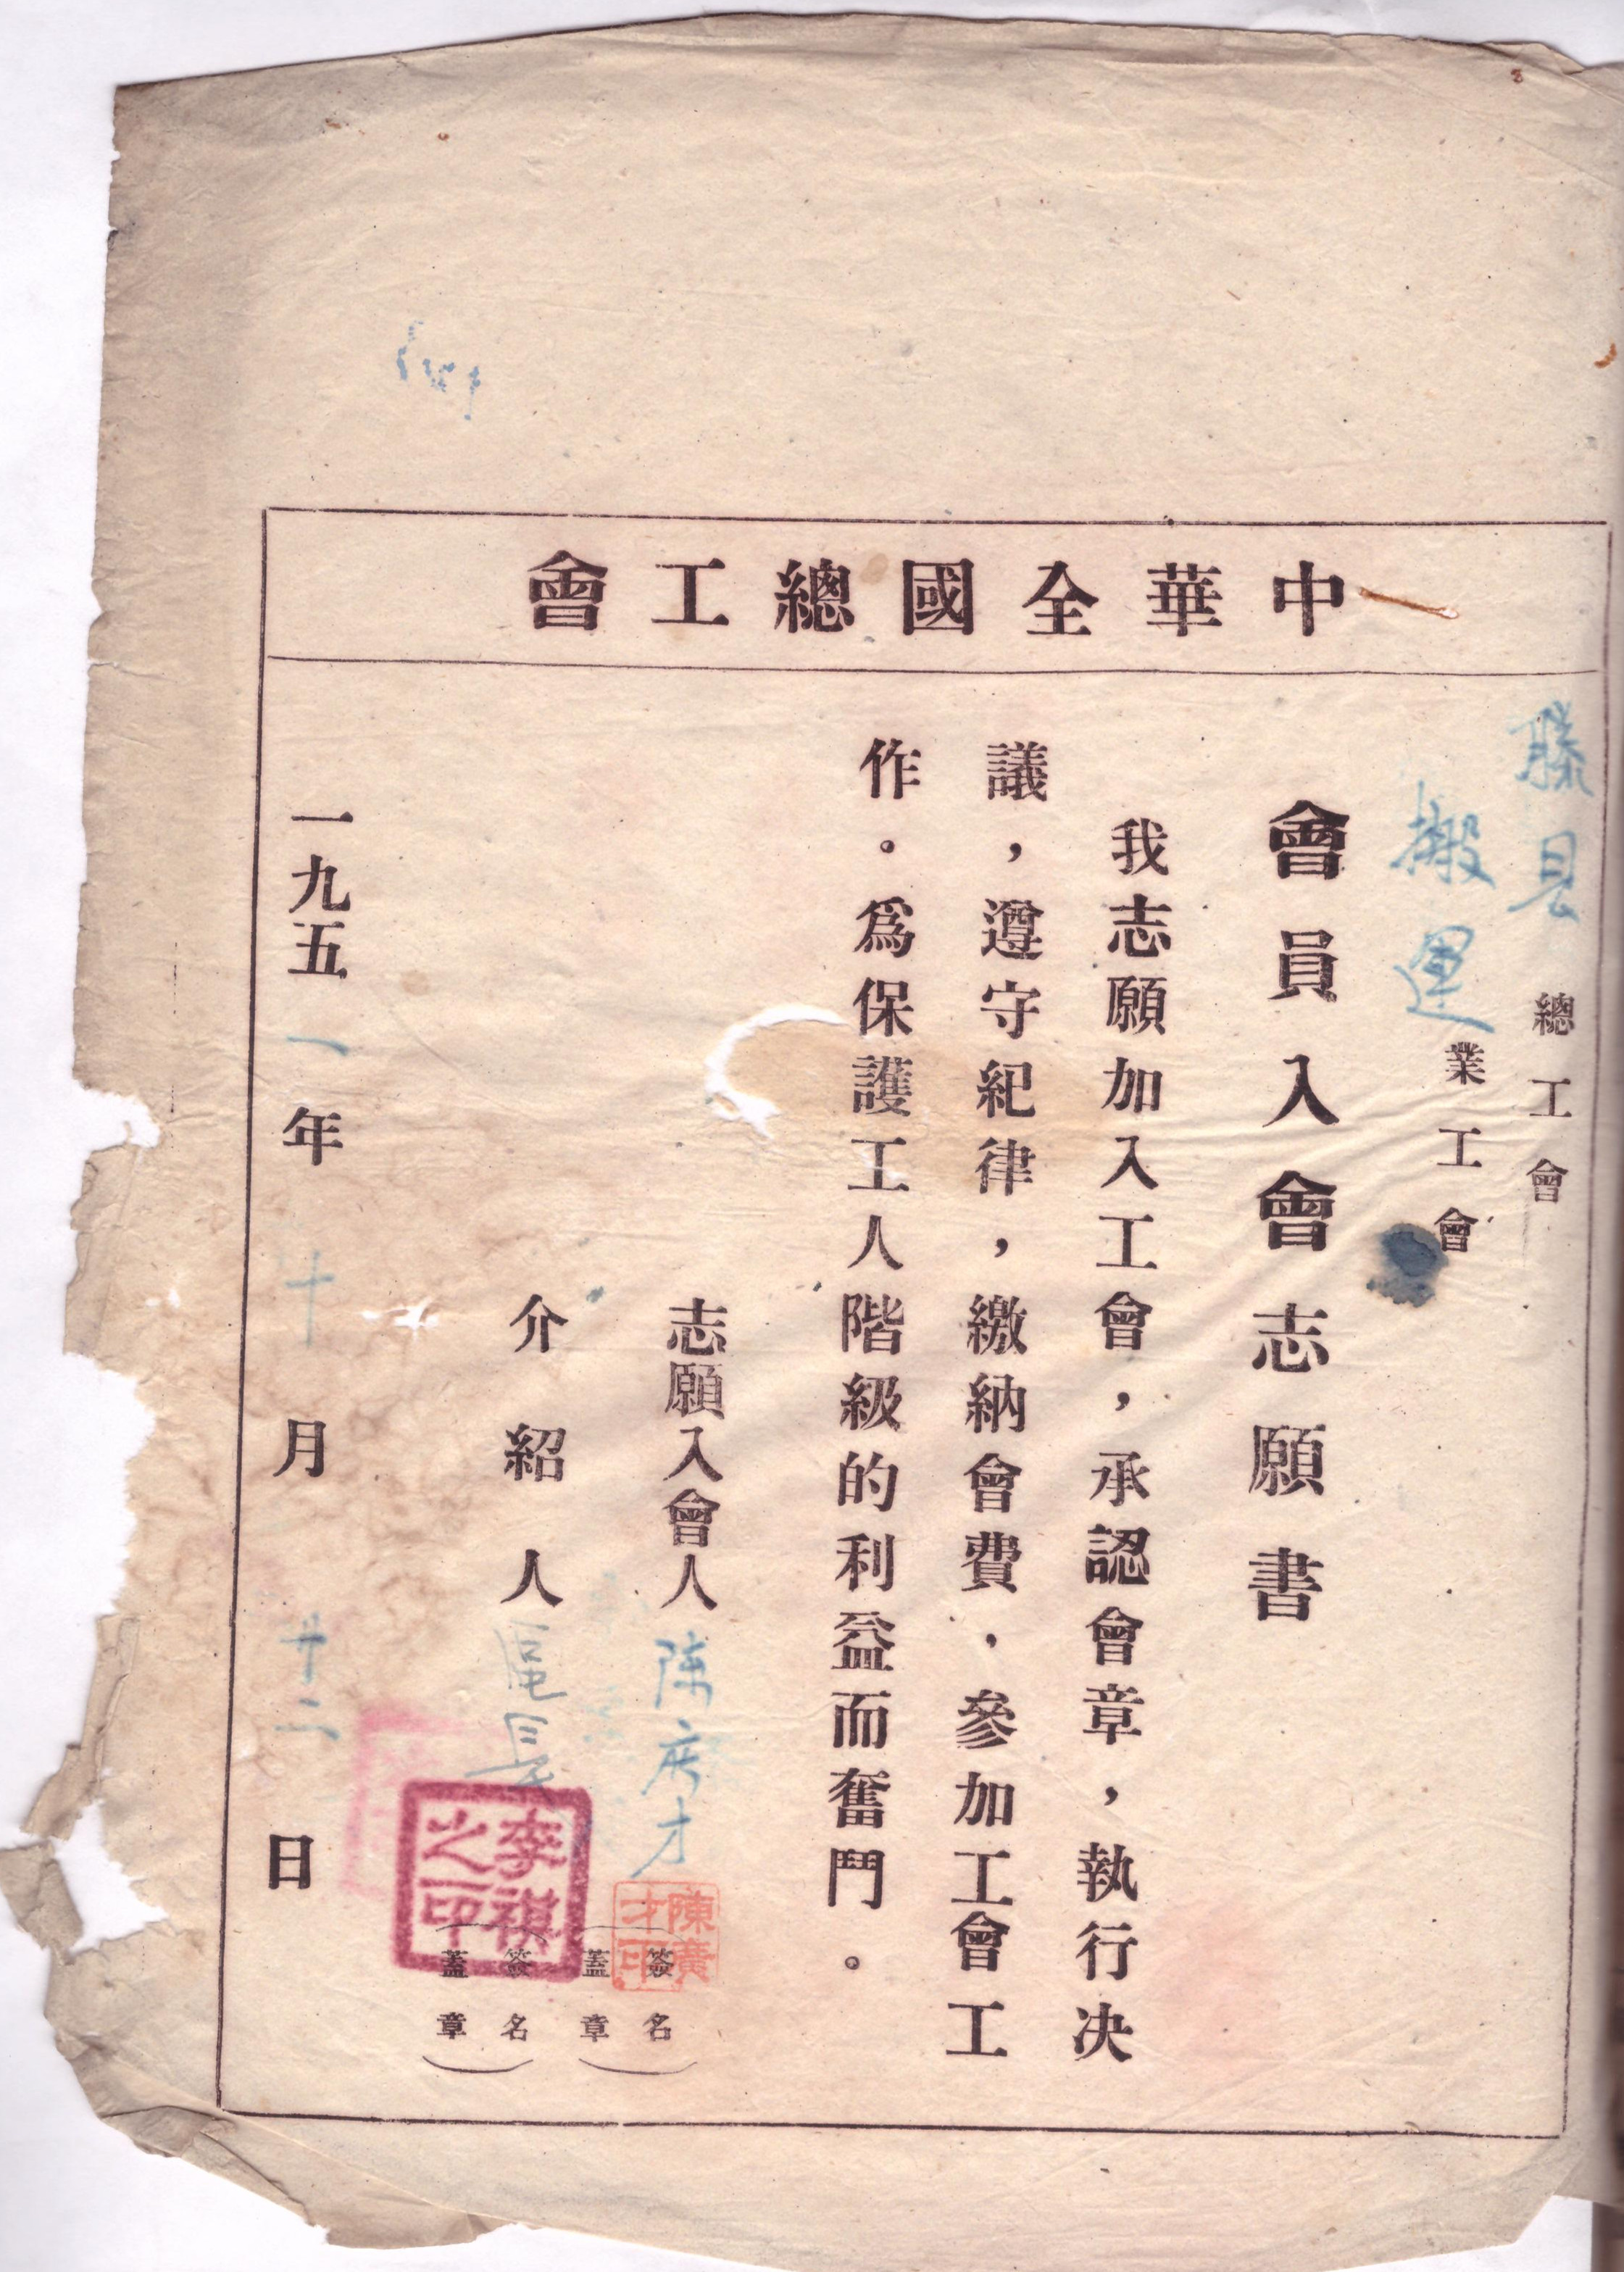 中華全國總工會
滕县總工會
搬運業工會
會員入會志願書
我志願加入工會，承認會章，執行决
議，遵守紀律，繳納會費，參加工會工
作。爲保護工人階級的利益而奮鬥。
志願入會人 陈广才 （簽名蓋章）
陳廣才印
介紹人 （簽名蓋章）
李祺之印
一九五一年十月廿二日